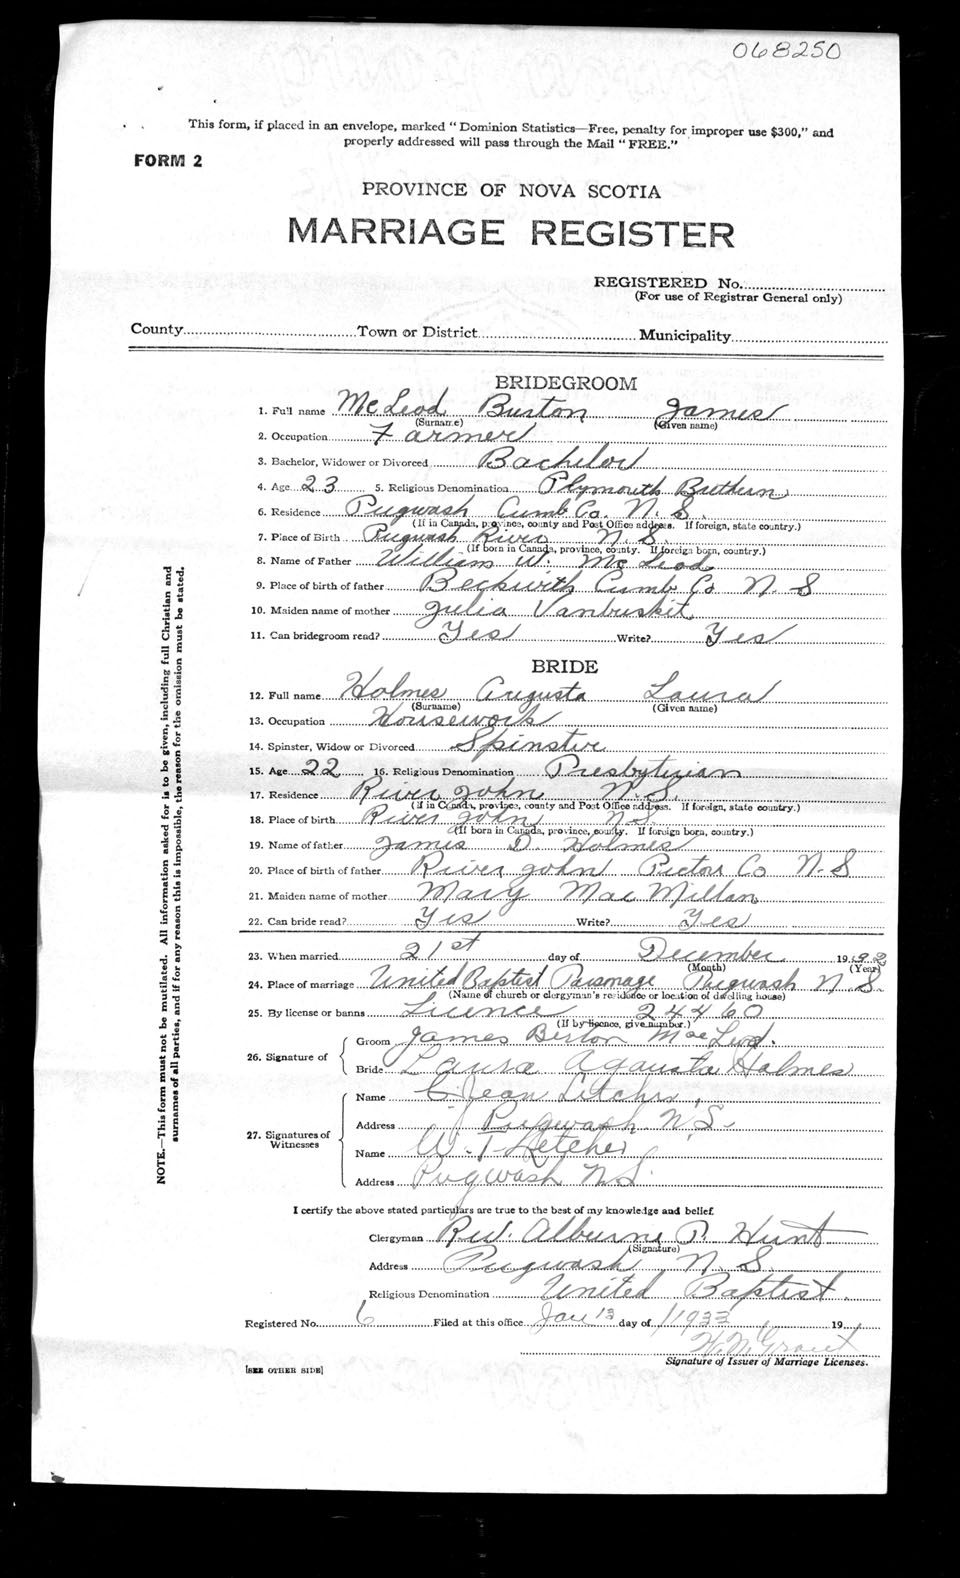 068250
This form, if placed in an envelope, marked "Dominion Statistics—Free, penalty for improper use $300," and
properly addressed will pass through the Mail "FREE."
FORM 2
PROVINCE OF NOVA SCOTIA
MARRIAGE REGISTER
REGISTERED No.
(For use of Registrar General only)
County Town or District Municipality
BRIDEGROOM
1. Full name McLeod Burton James
(Surname) (Given name)
2. Occupation Farmer
3. Bachelor, Widower or Divorced Bachelor
4. Age 23 5. Religious Denomination Plymouth Brethern
6. Residence Pugwash Cumb Co. N. S.
(If in Canada, province, county and Post Office address. If foreign, state country.)
7. Place of Birth Pugwash River N. S.
(If born in Canada, province, county. If foreign born, country.)
8. Name of Father William W. McLeod
9. Place of birth of father Beckwith Cumb Co N. S
10. Maiden name of mother Julia Vanbuskit
11. Can bridegroom read? Yes Write? Yes
BRIDE
12. Full name Holmes Augusta Laura
(Surname) (Given name)
13. Occupation Housework
14. Spinster, Widow or Divorced Spinster
15. Age 22 16. Religious Denomination Presbyterian
17. Residence River John N.S.
(If in Canada, province, county and Post Office address. If foreign, state country.)
18. Place of birth River John N.S.
(If born in Canada, province, county. If foreign born, country.)
19. Name of father James D. Holmes
20. Place of birth of father River John Pictou Co N. S
21. Maiden name of mother Mary MacMillan
22. Can bride read? Yes Write? Yes
23. When married 21st day of December 19
(Month) (Year)
24. Place of marriage United Baptist Parsonage Pugwash N. S.
(Name of church or clergyman's residence or location of dwelling house)
25. By license or banns Licence 24460
(If by licence, give number.)
26. Signature of Groom James Berton MacLeod.
Bride Laura Agausta Holmes
27. Signatures of Witnesses
Name C. Jean Letcher
Address Pugwash N.S.
Name W. T Letcher
Address Pugwash N.S.
I certify the above stated particulars are true to the best of my knowledge and belief.
Clergyman Rev. Alburne P. Hunt
(Signature)
Address Pugwash N. S.
Religious Denomination United Baptist.
Registered No. 6 Filed at this office Jan 13 day of 1933 19
H. N. Grant
Signature of Issuer of Marriage Licenses.
[SEE OTHER SIDE]
NOTE.—This form must not be mutilated. All information asked for is to be given, including full Christian and
surnames of all parties, and if for any reason this is impossible, the reason for the omission must be stated.